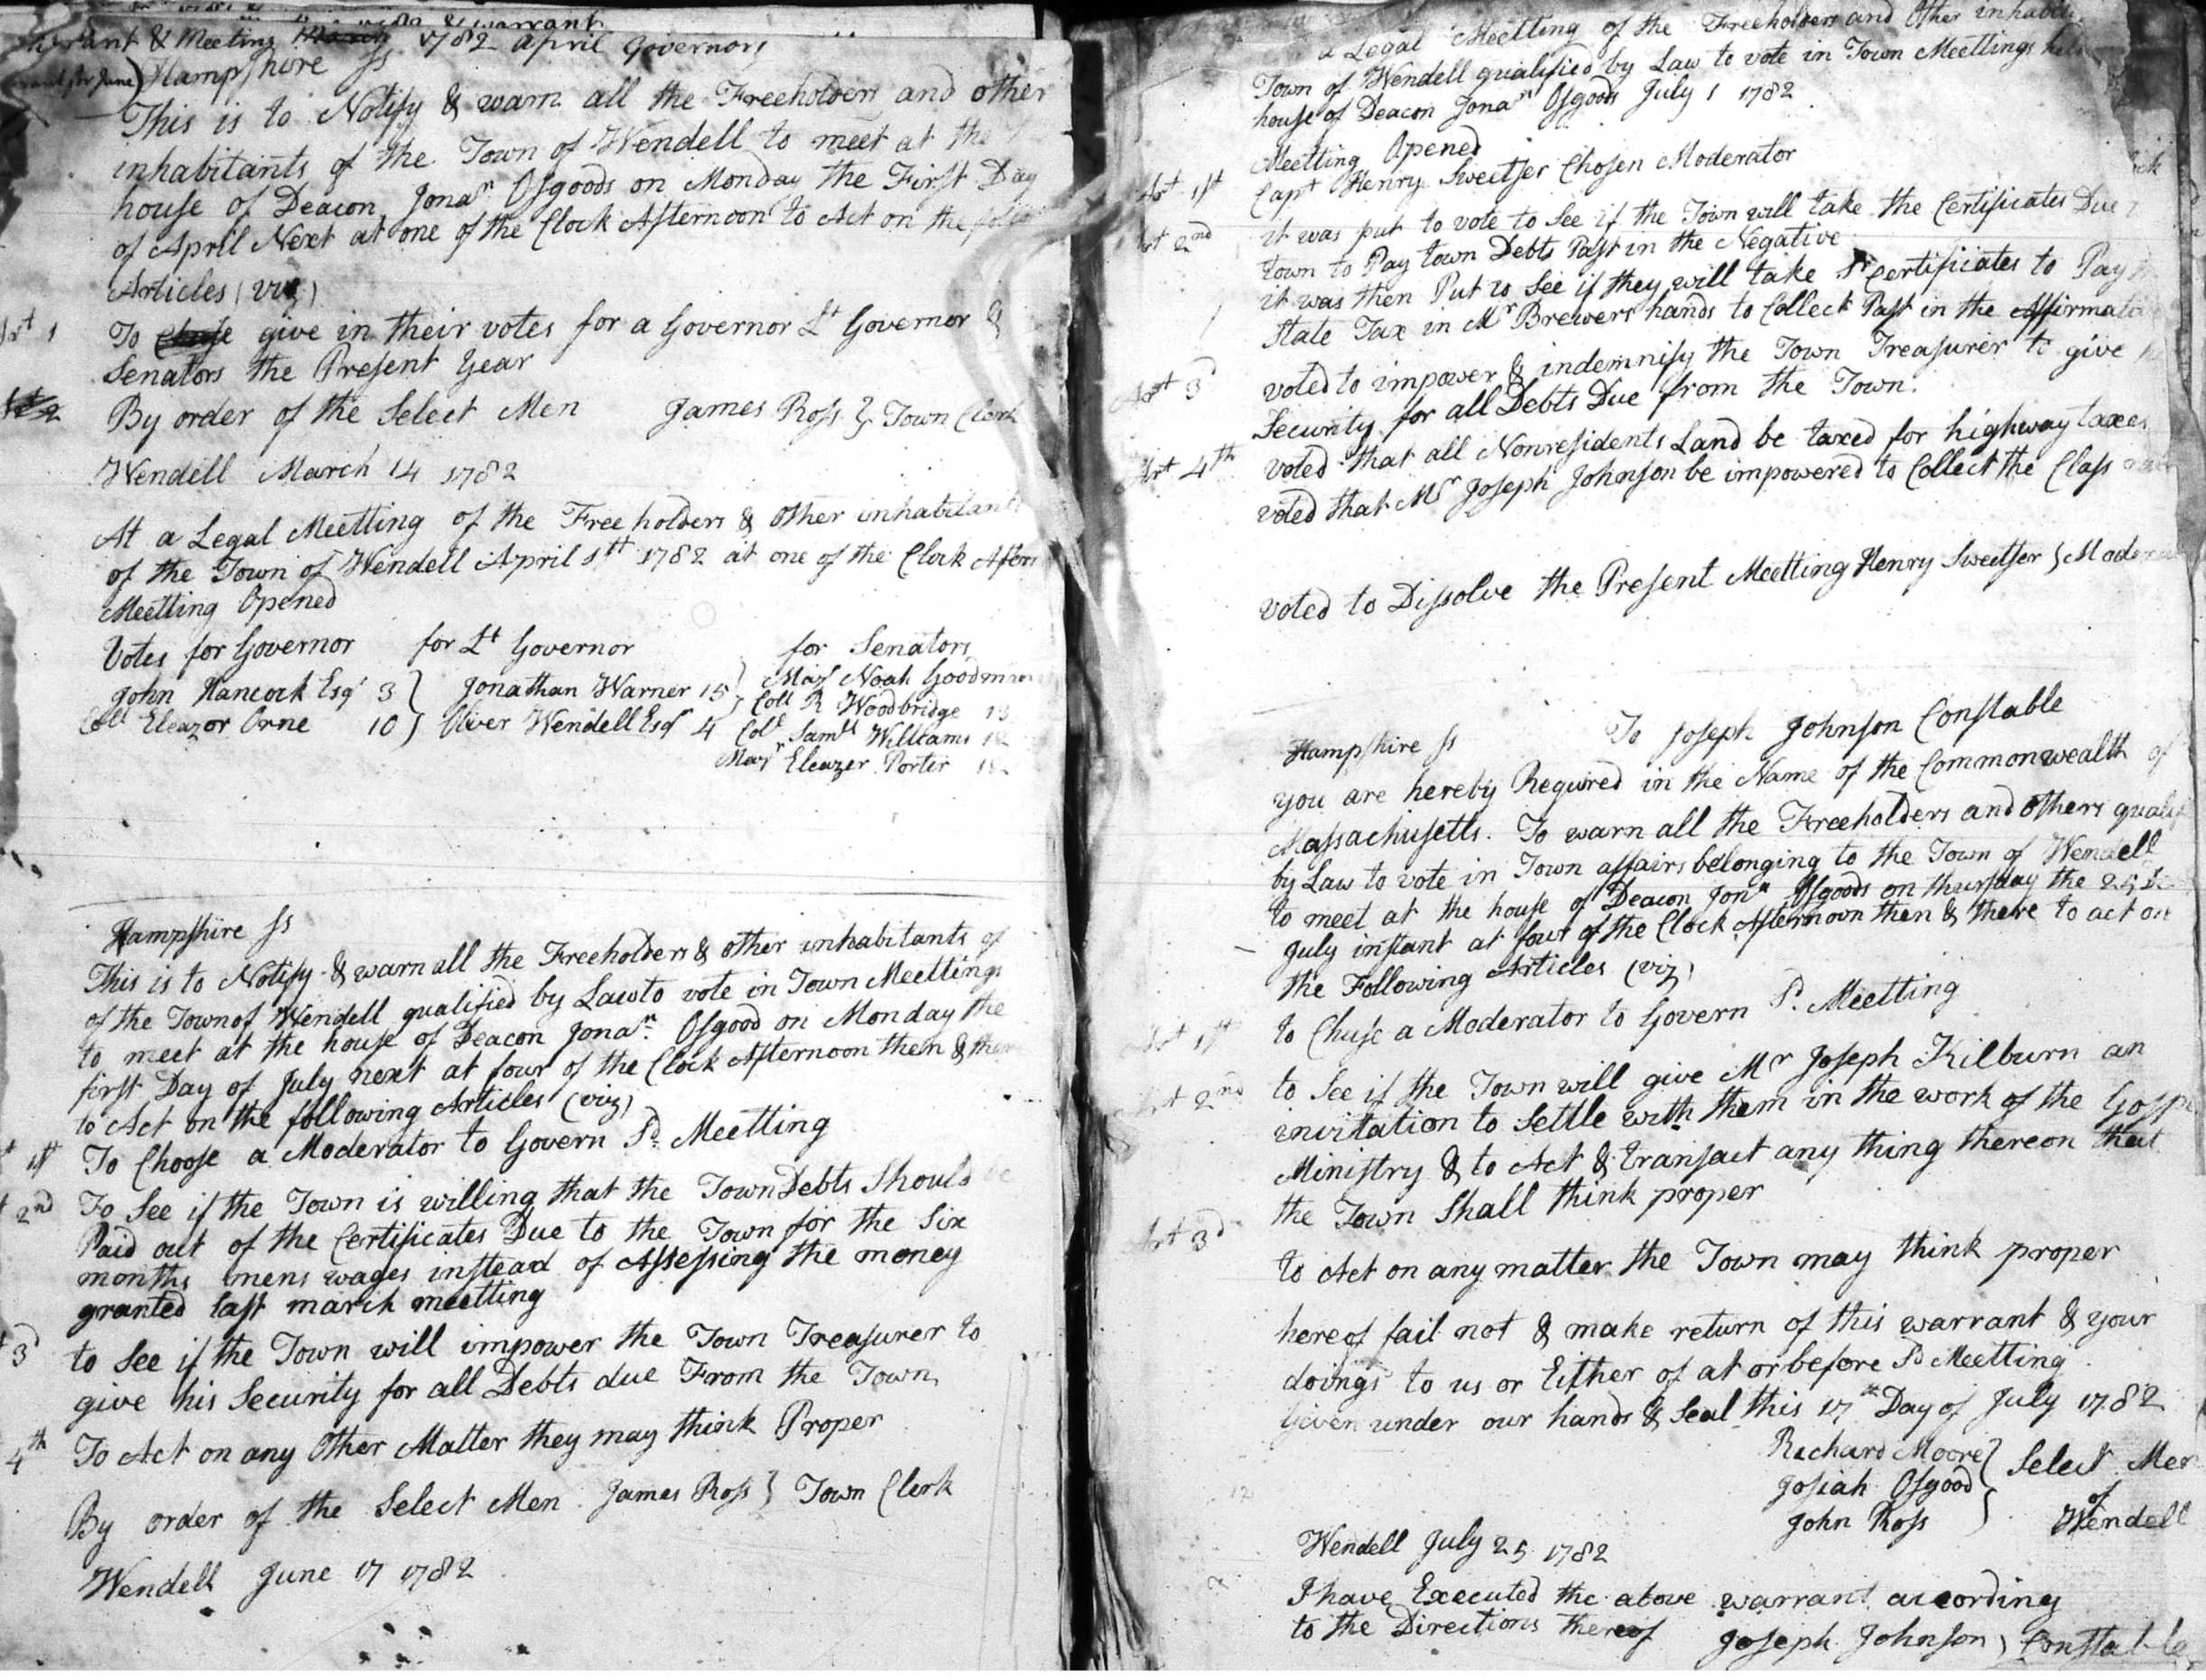 & warrant
& Meeting March 1782 April Governors
Hampshire Ss
for June)
This is to Notify & warn all the Freeholders and other
inhabitants of the Town of Wendell to meet at the
house of Deacon Jonan Osgoods on Monday the First Day
of April Next at one of the Clock Afternoon to Act on the
Articles (viz)
Art 1 To give in their votes for a Governor Lt Governor &
Senators the Present Year
Art 2 By order of the Select Men James Ross } Town Clerk
Wendell March 14 1782
At a Legal Meetting of the Freeholders & Other inhabitants
of the Town of Wendell April 1st 1782 at one of the Clock After
Meetting Opened
Votes for Governor for Lt Governor for Senators
John Hancock Esqr 3 } Jonathan Warner 15 } Majr Noah Goodman
Coll Eleazor Orne 10 } Oliver Wendell Esqr 4 Coll R Woodbridge 13
Coll Samll Williams
Majr Eleazer Porter
Hampshire Ss
This is to Notify & warn all the Freeholders & other inhabitants of
of the Town of Wendell qualified by Law to vote in Town Meettings
to meet at the house of Deacon Jonan Osgood on Monday the
first Day of July next at four of the Clock Afternoon then & there
to Act on the following Articles (viz)
1st To Choose a Moderator to Govern Sd Meetting
2nd To See if the Town is willing that the Town Debts Should be
Paid out of the Certificates Due to the Town for the Six
months mens wages instead of Assessing the money
granted last march meetting
3d to See if the Town will impower the Town Treasurer to
give his Security for all Debts due From the Town
4th To Act on any Other Matter they may think Proper
By order of the Select Men James Ross } Town Clerk
Wendell June 17 1782
a Legal Meetting of the Freeholders and Other inhabit
Town of Wendell qualified by Law to vote in Town Meettings
house of Deacon Jonan Osgoods July 1 1782
Meetting Opened
Art 1st Capt Henry Sweetser Chosen Moderator
Art 2nd it was put to vote to See if the Town will take the Certificates Due
town to Pay town Debts Past in the Negative
it was then Put to See if they will take Sd Certificates to Pay
State Tax in Mr Brewers hands to Collect Past in the Affirmative
Art 3d voted to impower & indemnify the Town Treasurer to give
Security for all Debts Due from the Town.
Art 4th voted that all Nonresidents Land be taxed for highway taxes
voted that Mr Joseph Johnson be impowered to Collect the Class
voted to Dissolve the Present Meetting Henry Sweetser } Moderator
Hampshire Ss To Joseph Johnson Constable
you are hereby Required in the Name of the Commonwealth of
Massachusetts. To warn all the Freeholders and others qualif
by Law to vote in Town affairs belonging to the Town of Wendell
to meet at the house of Deacon Jonn Osgoods on thursday the 25
July instant at four of the Clock Afternoon then & there to act on
the Following Articles (viz)
Art 1st to Chuse a Moderator to Govern Sd Meetting
Art 2nd to See if the Town will give Mr Joseph Kilburn an
invitation to Settle with them in the work of the Gospel
Ministry & to Act & transact any thing thereon that
the Town Shall think proper
Art 3d to Act on any matter the Town may think proper
hereof fail not & make return of this warrant & your
doings to us or Either of at or before Sd Meetting
Given under our hands & Seal this 17th Day of July 1782
Richard Moore
Josiah Osgood } Select Men
John Ross of Wendell
Wendell July 25 1782
I have Executed the above warrant according
to the Directions thereof Joseph Johnson } Constable